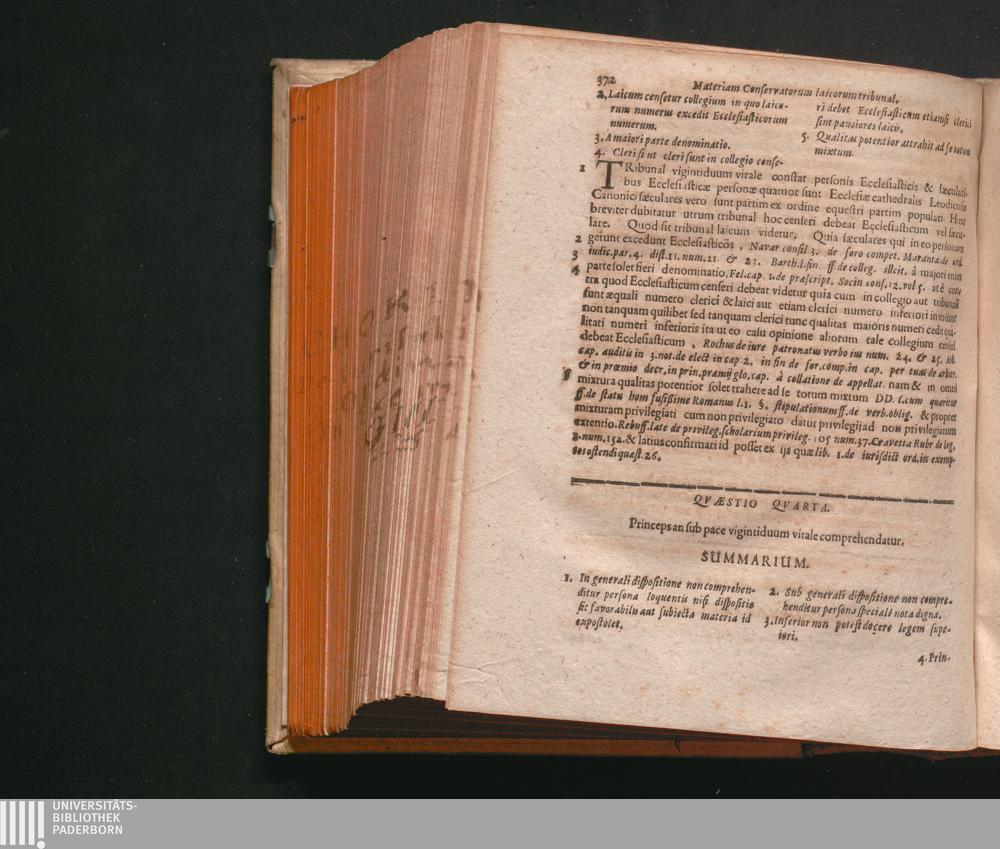 372
Materiam Conservatorum laicorum tribunal.
2. Laicum censetur collegium in quo laico-
rum numerus excedit Ecclesiasticorum
numerum.
3. A maiori parte denominatio.
4. Cleri si ut cleri sunt in collegio conse-
ri debet Ecclesiasticum etiamsi clerici
sint pauciores laicis.
5. Qualitas potentior attrahit ad se totum
mixtum.
1 TRibunal vigintiduum virale constat personis Ecclesiasticis & sæculari-
bus Ecclesiasticæ personæ quatuor sunt Ecclesiæ cathedralis Leodiensis
Canonici sæculares vero sunt partim ex ordine equestri partim populari. Hinc
breviter dubitatur utrum tribunal hoc censeri debeat Ecclesiasticum vel sæcu-
lare. Quod sit tribunal laicum videtur. Quia sæculares qui in eo
2 gerunt excedunt Ecclesiasticos, Navar consil 3. de foro compet. Maranta de ord.
3 iudic. par. 4. dist. 11. num. 21. & 23. Barth. l. fin. ff de colleg. illicit. à majori enim
4 parte solet fieri denominatio, Fel. cap. 1. de præscript. Socin cons. 12. vol 5. at è con-
tra quod Ecclesiasticum censeri debeat videtur quia cum in collegio aut tribunali
sunt æquali numero clerici & laici aut etiam clerici numero inferiori in eo sunt
non tanquam quilibet sed tanquam clerici tunc qualitas maioris numeri cedit qua-
litati numeri inferioris ita ut eo casu opinione aliorum tale collegium censeri
debeat Ecclesiasticum, Rochus de iure patronatus verbo ius num. 24. & 25. Ab.
cap. auditis in 3. not. de elect in cap 2. in fin de for. comp. in cap. per tuas de arbitr.
& in proœmio decr. in prin. præmij glo. cap. à collatione de appellat. nam & in omni
5 mixtura qualitas potentior solet trahere ad se totum mixtum DD. l. cum quæritur
ff. de statu hom fusissime Romanus l. 1. §. stipulationum ff. de verb. oblig. & propter
mixturam privilegiati cum non privilegiato datur privilegij ad non privilegiatum
extentio. Rebuff. late de previleg. scholarium privileg. 105 num. 37. Cravetta Rubr de leg.
2. num. 152. & latius confirmati id posset ex ijs quæ lib. 1. de iurisdict ord. in exemp-
tos ostendi quæst. 26.
QVÆSTIO QVARTA.
Princeps an sub pace vigintiduum virale comprehendatur.
SUMMARIUM.
1. In generali dispositione non comprehen-
ditur persona loquentis nisi dispositio
sit favorabilis aut subiecta materia id
expostolet.
2. Sub generali dispositione non compre-
henditur persona speciali nota digna.
3. Inferior non potest docere legem supe-
iori.
4. Prin-
UNIVERSITÄTS-
BIBLIOTHEK
PADERBORN